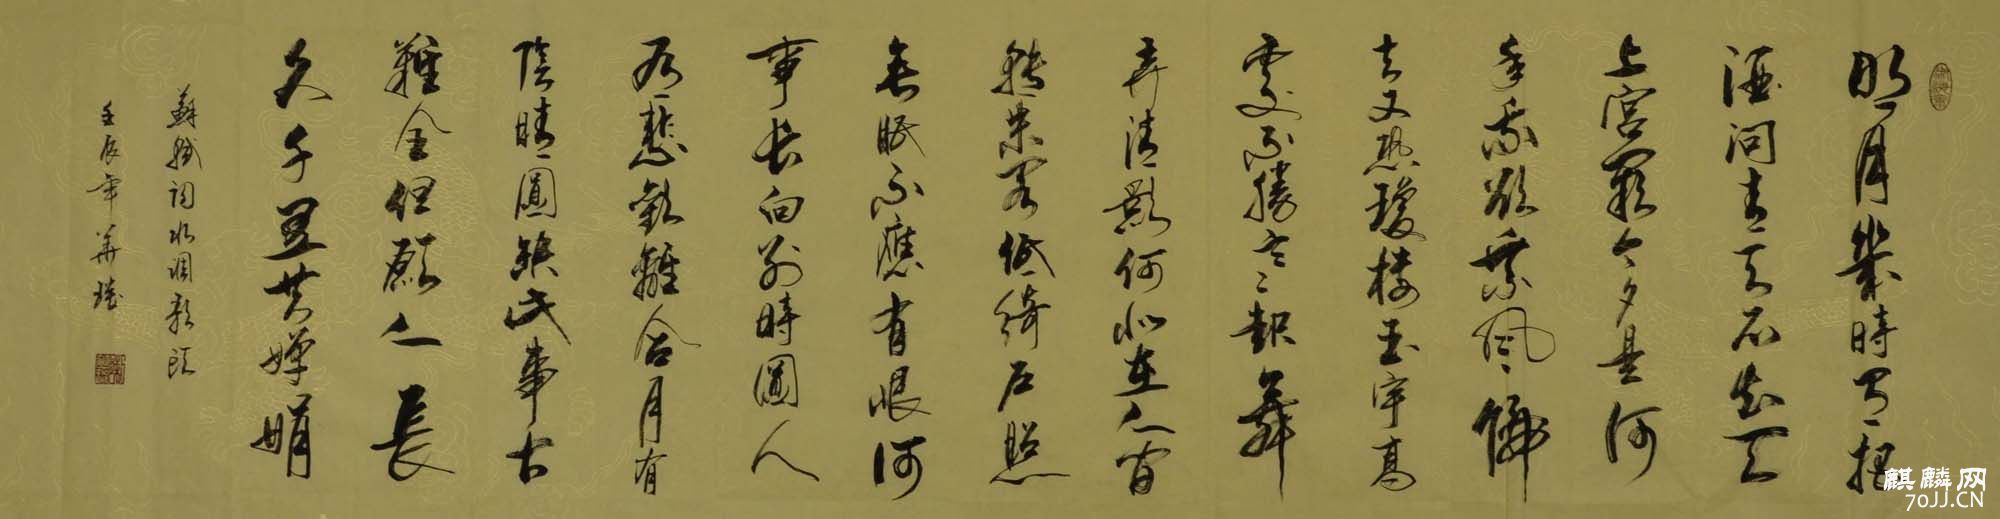 明月幾時有把
酒問青天不知天
上宮闕今夕是何
年我欲乘風歸
去又恐瓊樓玉宇高
處不勝寒起舞
弄清影何似在人間
轉朱閣低綺戶照
無眠不應有恨何
事長向別時圓人
有悲歡離合月有
陰晴圓缺此事古
難全但願人長
久千里共嬋娟
蘇軾詞水調歌頭
壬辰年華
麒麟网
70JJ.CN